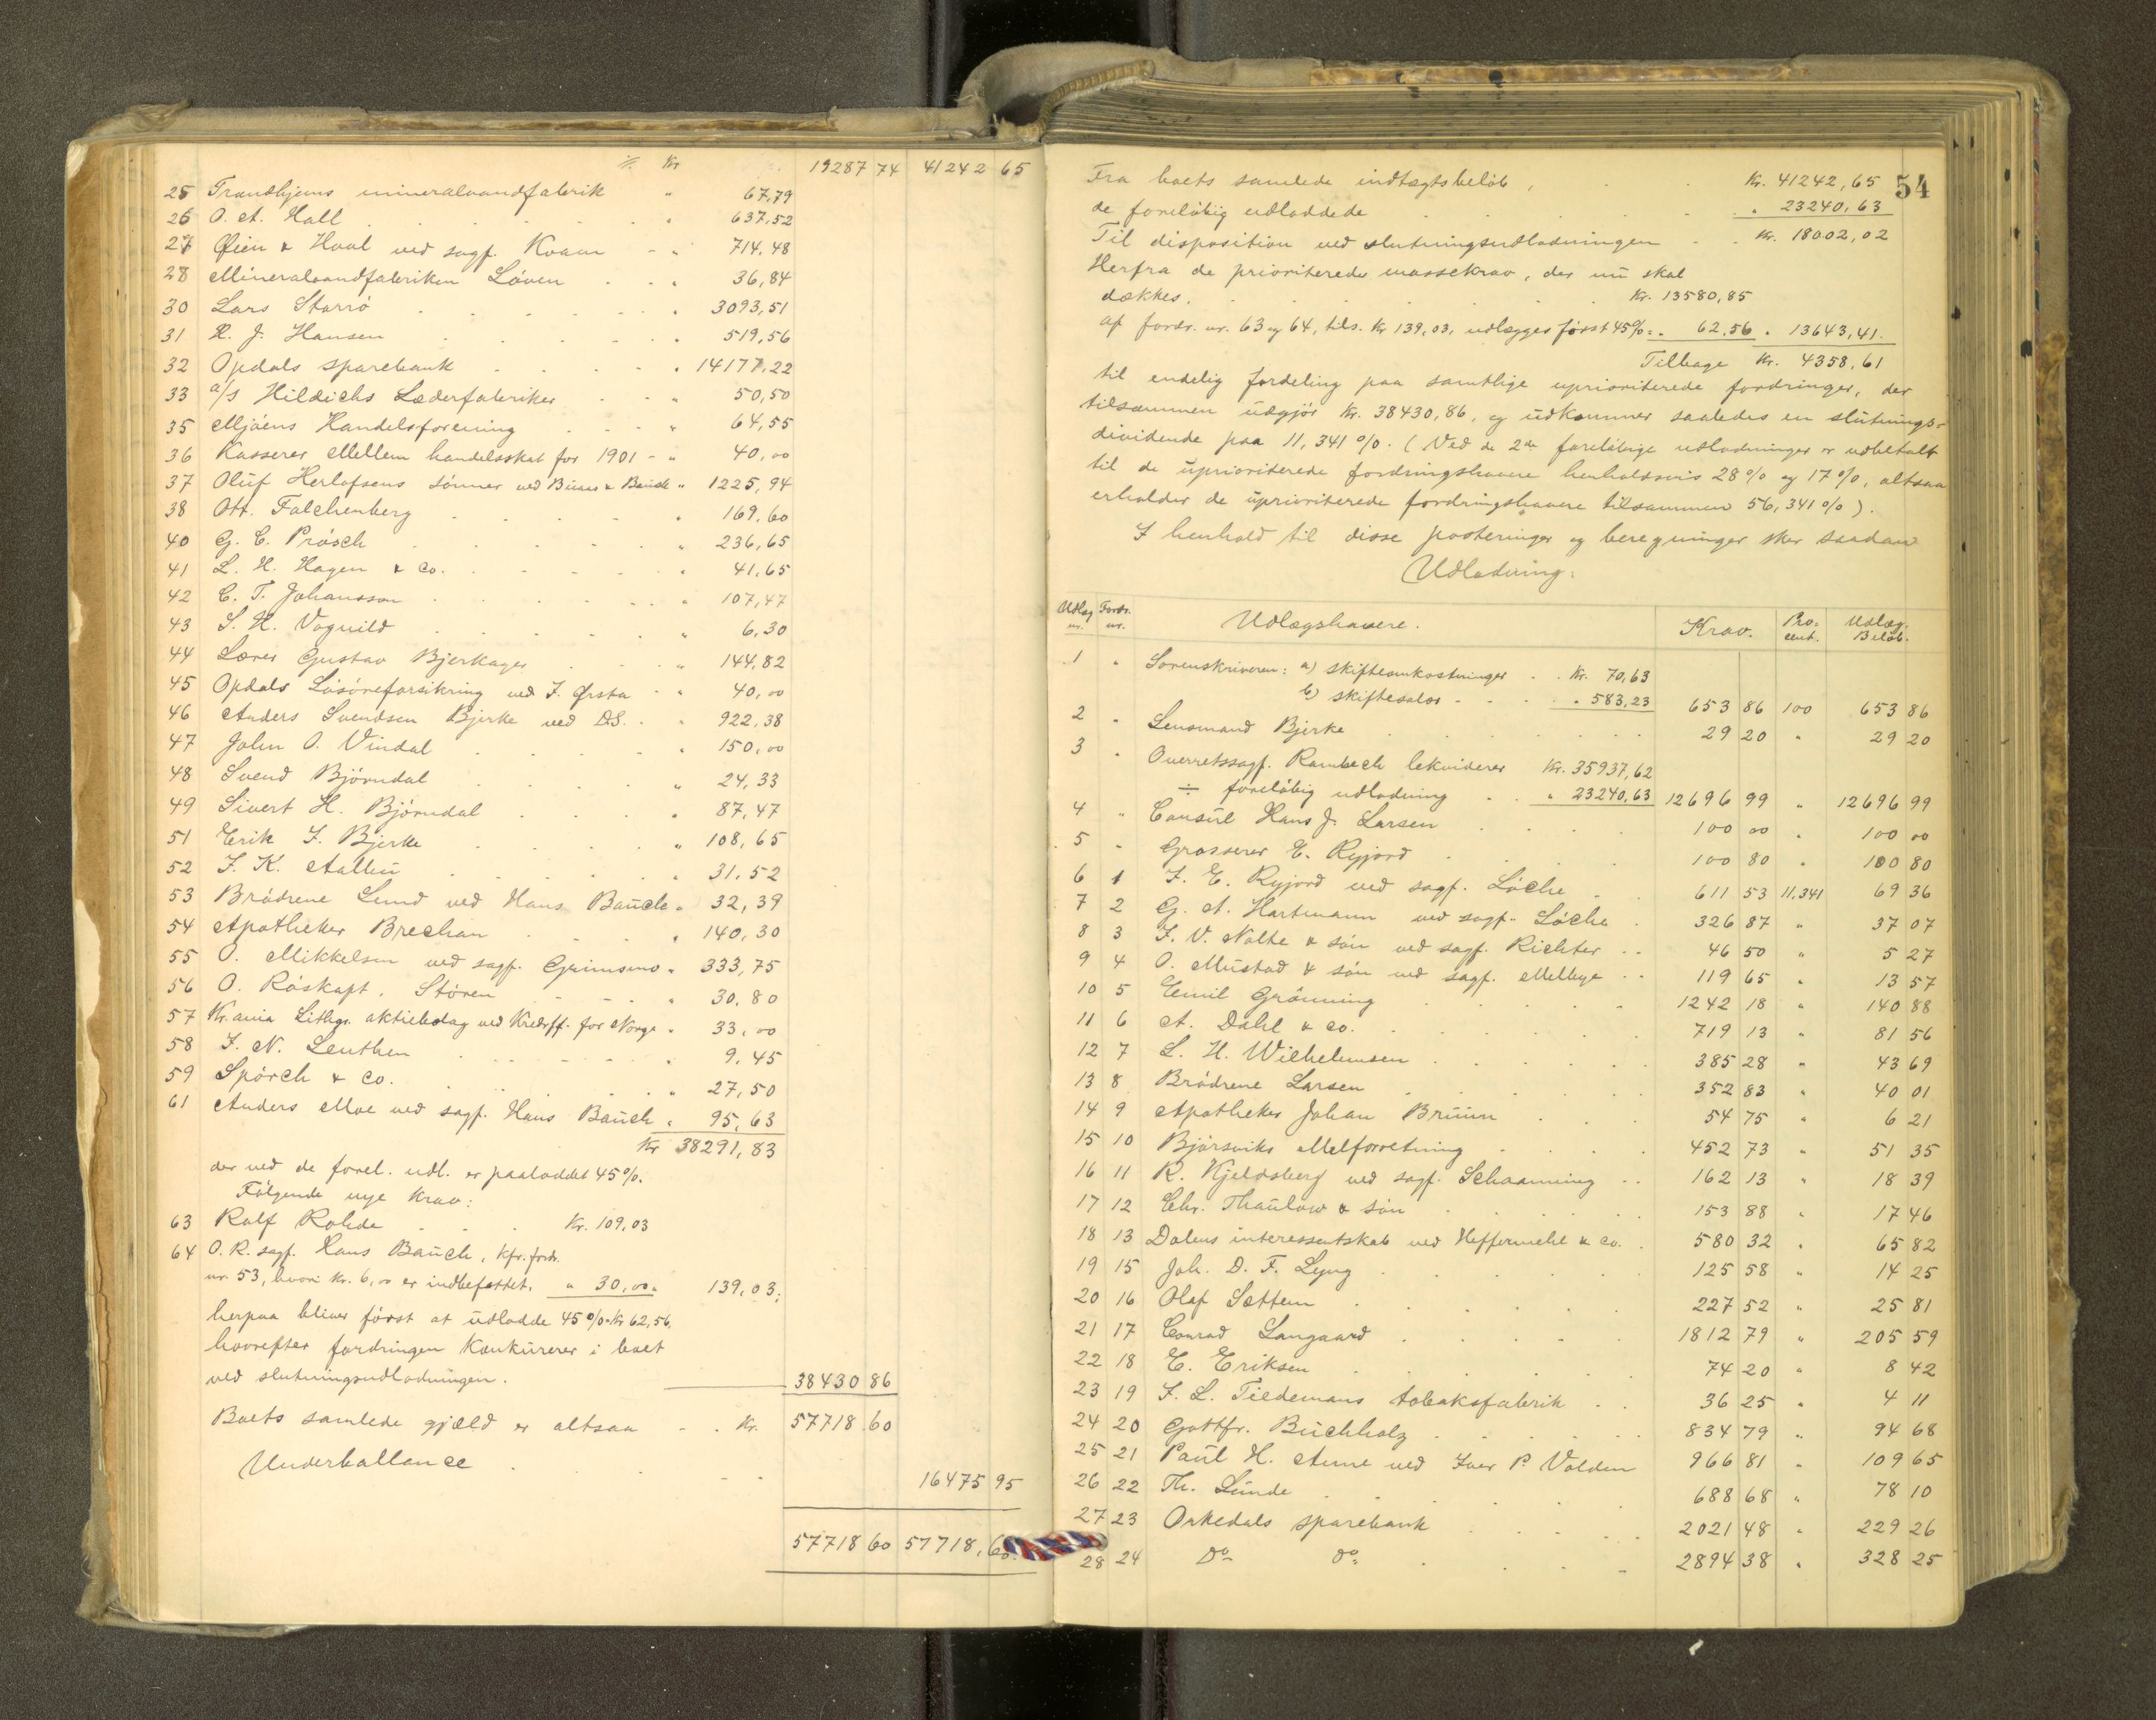 % Kr 19287 74 41242 65
25 Trondhjems mineralvandfabrik " 67,79
26 O. A. Hall . . . " 637,52
27 Øien & Hoal ved sagf. Kvam - " 714,48
28 Mineralvandfabriken Löven . . " 36,84
30 Lars Starrö . . . " 3093,51
31 R. J. Hansen . . . " 519,56
32 Opdals sparebank . . . " 14177,22
33 a/s Hildichs Læderfabriker . . " 50,50
35 Mjöens Handelsforening . . " 64,55
36 Kasserer Mellem handelsskat for 1901 - " 40,00
37 Oluf Herlofsens sönner ved Buaas & Bauck " 1225,94
38 Ott. Falchenberg . . . " 169,60
40 G. C. Prösch . . . " 236,65
41 L. H. Hagen & Co. . . . " 41,65
42 C. T. Johansson . . . " 107,47
43 S. H. Vognild . . . " 6,30
44 Lærer Gustav Bjerkager . . " 144,82
45 Opdals Lösöreforsikring ved J. Ørsta - " 40,00
46 Anders Svendsen Bjerke ved D.S. . " 922,38
47 John O. Vindal . . . " 150,00
48 Svend Björndal . . . " 24,33
49 Sivert H. Björndal . . . " 87,47
51 Erik J. Bjerke . . . " 108,65
52 J. K. Aalbu . . . " 31,52
53 Brödrene Lund ved Hans Bauck " 32,39
54 Apotheker Brechan . . . " 140,30
55 O. Mikkelsen ved sagf. Grimsmo " 333,75
56 O. Röskaft, Stören - - " 30,80
57 Kr.ania Lithgr. aktiebolag ved Kredsff. for Norge " 33,00
58 J. N. Leuthen . . . " 9,45
59 Spörck & Co. . . . " 27,50
61 Anders Moe ved sagf. Hans Bauck " 95,63
Kr 38291,83
der ved de forel. udl. er paaloddet 45%.
Følgende nye krav:
63 Rolf Rohde . . . Kr. 109,03
64 O. R. sagf. Hans Bauck, kfr. fordr.
nr. 53, hvori kr. 6,00 er indbefattet, " 30,00 " 139,03;
herpaa bliver först at udlodde 45% = Kr 62,56,
hvorefter fordringen konkurerer i boet
ved slutningsudlodningen. 38430 86
Boets samlede gjæld er altsaa - . Kr. 57718.60
Underballance . . . 16475 95
57718 60 57718,60.
54
Fra boets samlede indtægtsbelöb, . . Kr. 41242,65
de foreløbig udloddede . . . " 23240,63
Til disposition ved slutningsudlodningen - . Kr. 18002,02
Herfra de prioriterede massekrav, der nu skal
dækkes. . . . Kr. 13580,85
af fordr. nr. 63 og 64, tils. Kr 139,03, udlægges først 45% = . 62,56 " 13643,41.
Tilbage Kr. 4358,61
til endelig fordeling paa samtlige uprioriterede fordringer, der
tilsammen udgjör Kr. 38430,86, og udkommer saaledes en slutnings-
dividende paa 11,341 %. (Ved de 2de foreløbige udlodninger er udbetalt
til de uprioriterede fordringshavere henholdsvis 28 % og 17 %, altsaa
erholder de uprioriterede fordringshavere tilsammen 56,341 %).
I henhold til disse posteringer og beregninger sker saadan
Udlodning:
Udlæg nr. Fordr. nr. Udlægshavere. Krav. Pro-cent. Udlæg. Belöb.
1 " Sorenskriveren: a) skifteomkostninger . . Kr. 70,63
b) skiftesalær - . . " 583,23 653 86 100 653 86
2 " Lensmand Bjerke . . . 29 20 " 29 20
3 " Overretssagf. Rambech lekviderer Kr. 35937,62
÷ foreløbig udlodning . . " 23240,63 12696 99 " 12696 99
4 " Consul Hans J. Larsen . . . 100 00 " 100 00
5 " Grosserer E. Ryjord . . . 100 80 " 100 80
6 1 J. E. Ryjord ved sagf. Löche . 611 53 11,341 69 36
7 2 G. A. Hartmann ved sagf. Löche . 326 87 " 37 07
8 3 J. V. Nolte & sön ved sagf. Richter . . 46 50 " 5 27
9 4 O. Mustad & sön ved sagf. Mellbye . . 119 65 " 13 57
10 5 Emil Grönning . . . 1242 18 " 140 88
11 6 A. Dahl & co. . . . 719 13 " 81 56
12 7 L. H. Wilhelmsen . . . 385 28 " 43 69
13 8 Brödrene Larsen . . . 352 83 " 40 01
14 9 Apotheker Johan Bruun . . . 54 75 " 6 21
15 10 Bjørsviks Melforretning . . . 452 73 " 51 35
16 11 R. Kjeldsberg ved sagf. Schaanning . . 162 13 " 18 39
17 12 Chr. Thaulow & sön . . . 153 88 " 17 46
18 13 Dalens interessentskab ved Heffermehl & co. . 580 32 " 65 82
19 15 Joh. D. F. Lyng . . . 125 58 " 14 25
20 16 Olaf Sættem . . . 227 52 " 25 81
21 17 Conrad Langaard . . . 1812 79 " 205 59
22 18 E. Eriksen . . . 74 20 " 8 42
23 19 J. L. Tiedemans tobaksfabrik . . 36 25 " 4 11
24 20 Gottfr. Buchholz . . . 834 79 " 94 68
25 21 Paul H. Aune ved Iver P. Volden 966 81 " 109 65
26 22 Th. Lunde . . . 688 68 " 78 10
27 23 Orkedals sparebank . . . 2021 48 " 229 26
28 24 Do Do . . . 2894 38 " 328 25